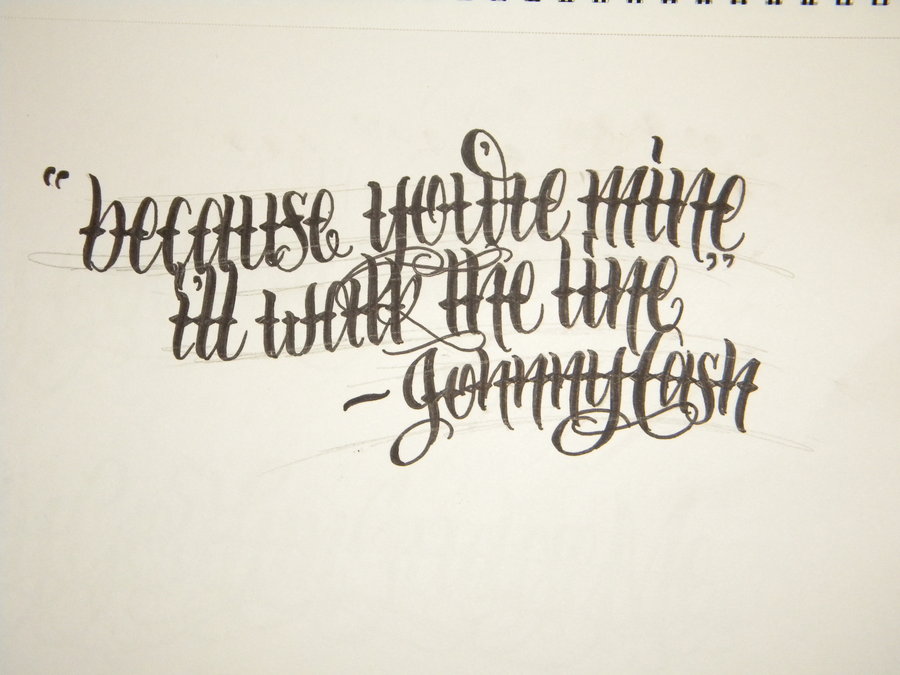 “because you're mine
i'll walk the line”
- Johnny Cash